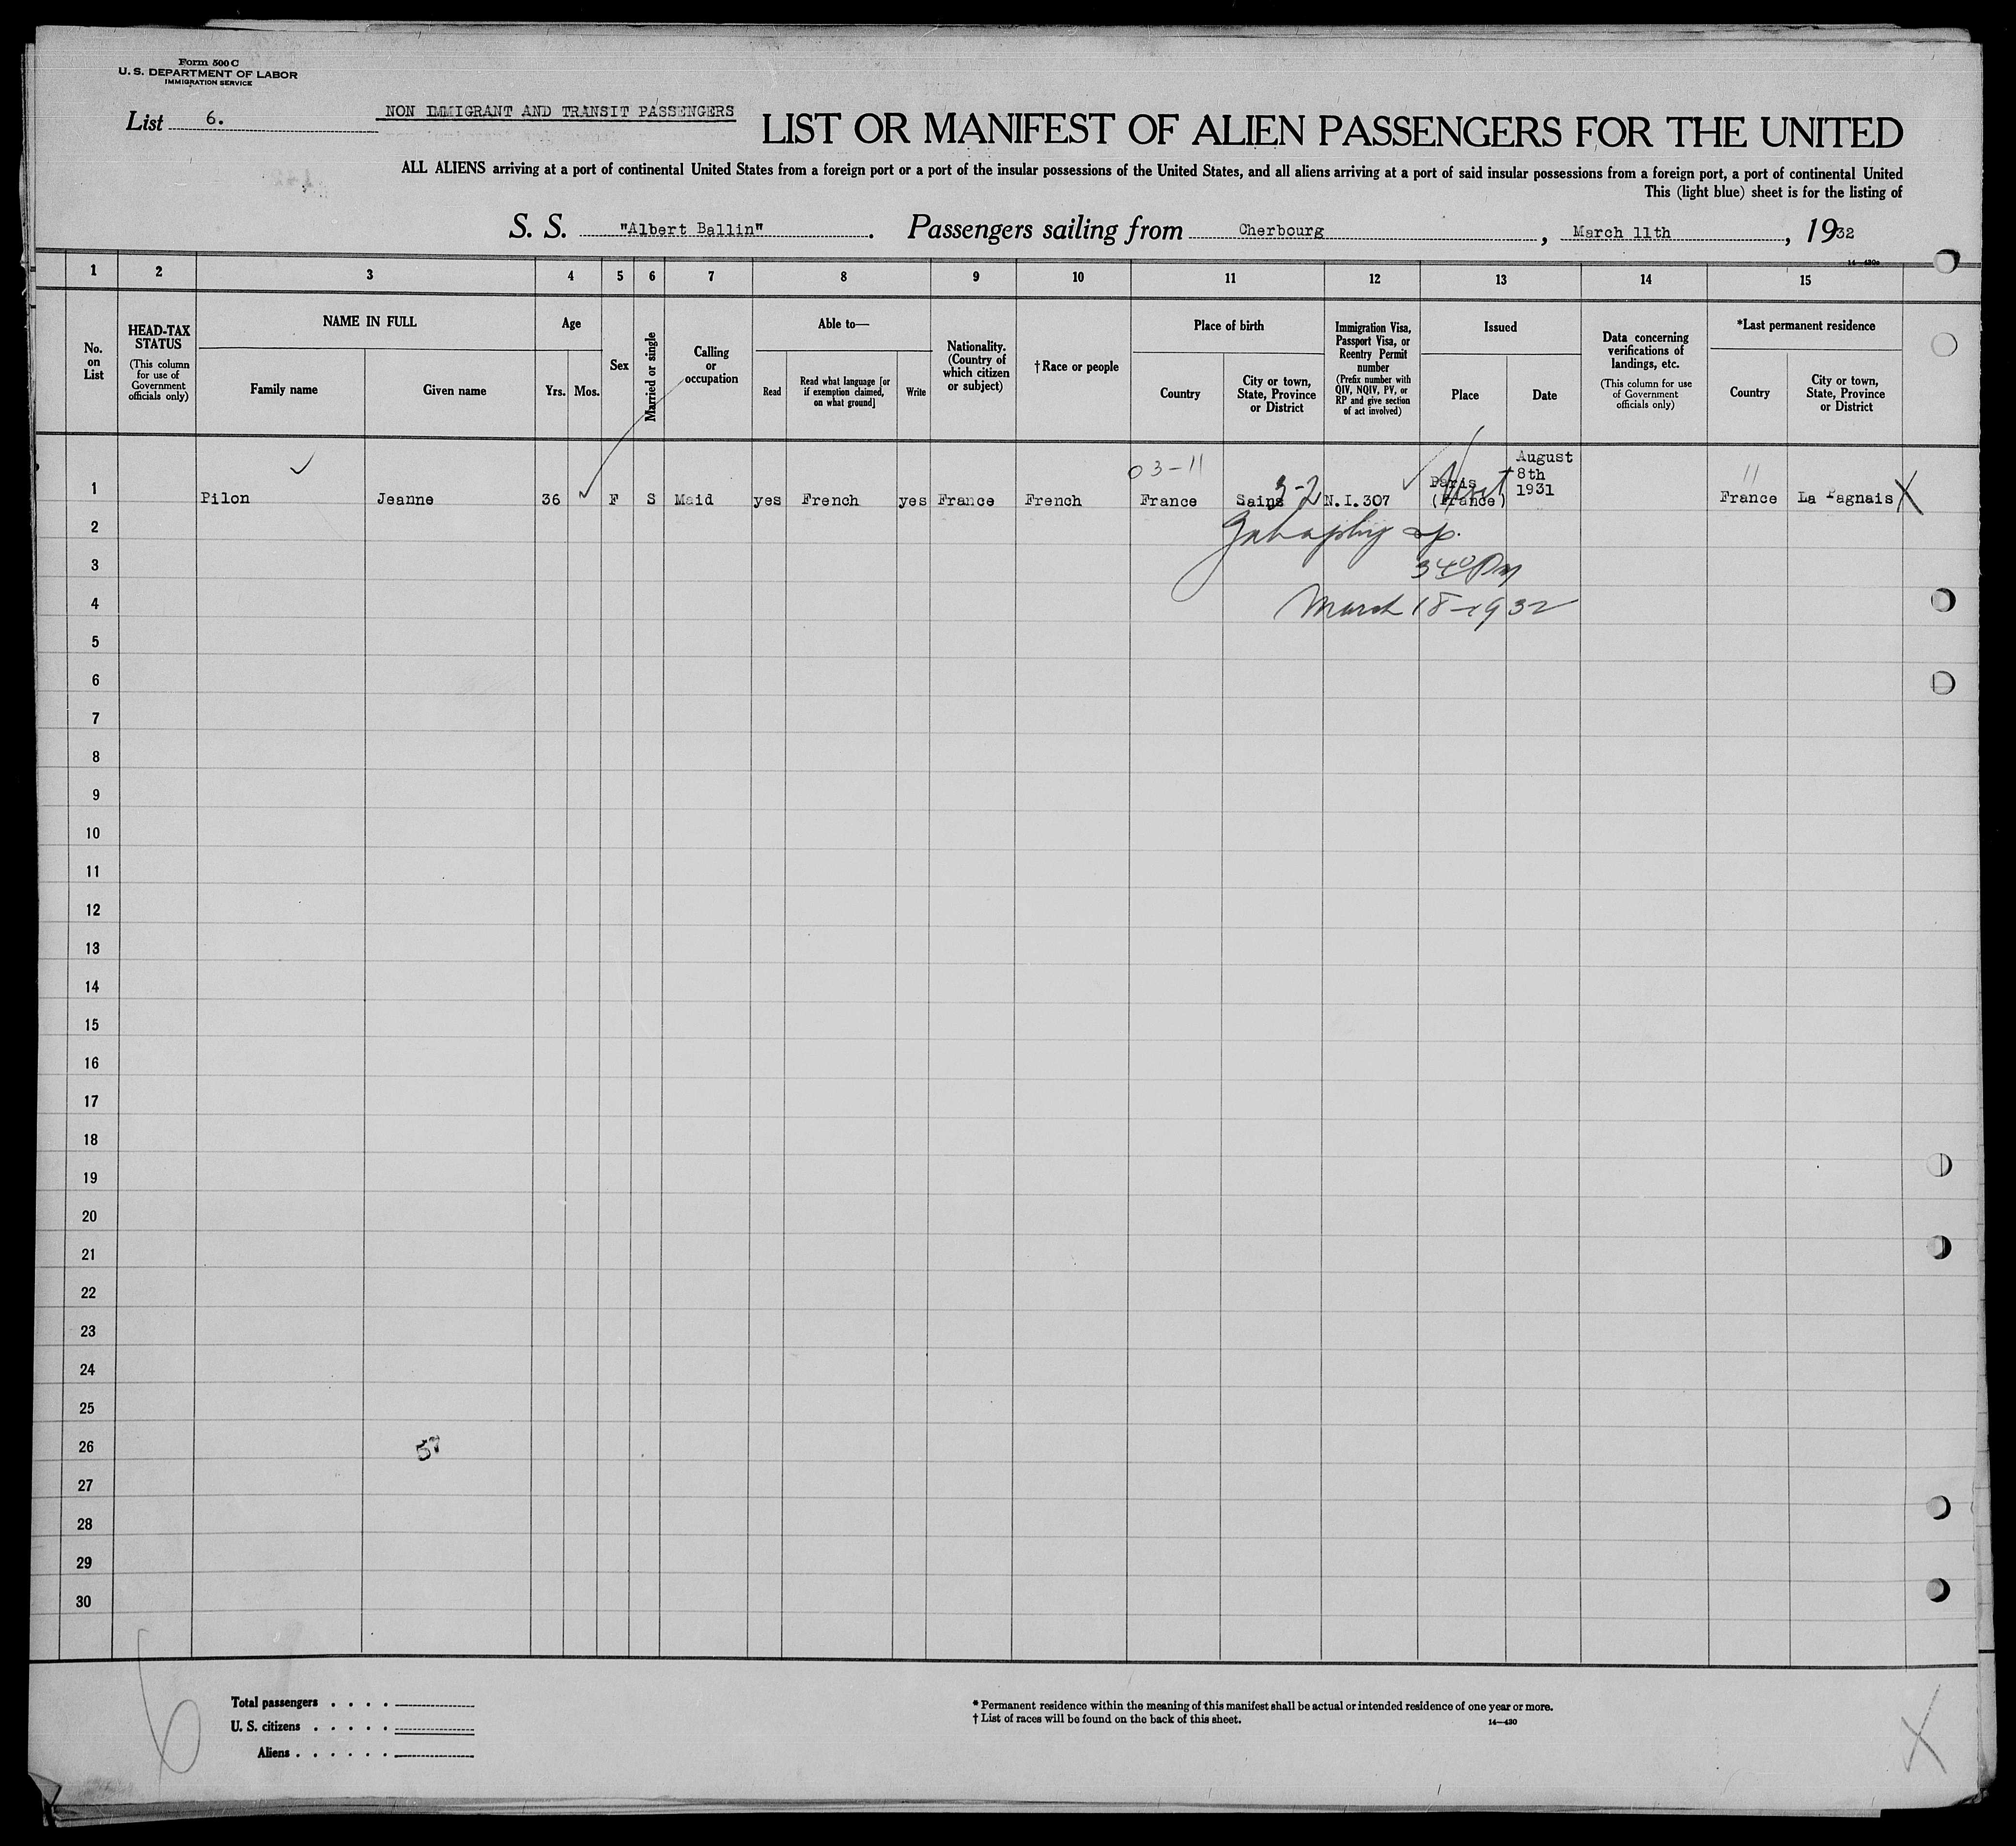 Form 500 C
U. S. DEPARTMENT OF LABOR
IMMIGRATION SERVICE
List 6.
NON IMMIGRANT AND TRANSIT PASSENGERS
LIST OR MANIFEST OF ALIEN PASSENGERS FOR THE UNITED
ALL ALIENS arriving at a port of continental United States from a foreign port or a port of the insular possessions of the United States, and all aliens arriving at a port of said insular possessions from a foreign port, a port of continental United
This (light blue) sheet is for the listing of
S. S. "Albert Ballin". Passengers sailing from Cherbourg, March 11th, 1932
14—430c
1 2 3 4 5 6 7 8 9 10 11 12 13 14 15
No. on List
HEAD-TAX STATUS
(This column for use of Government officials only)
NAME IN FULL
Family name
Given name
Age
Yrs.
Mos.
Sex
Married or single
Calling or occupation
Able to—
Read
Read what language [or if exemption claimed, on what ground]
Write
Nationality. (Country of which citizen or subject)
† Race or people
Place of birth
Country
City or town, State, Province or District
Immigration Visa, Passport Visa, or Reentry Permit number
(Prefix number with QIV, NQIV, PV, or RP and give section of act involved)
Issued
Place
Date
Data concerning verifications of landings, etc.
(This column for use of Government officials only)
*Last permanent residence
Country
City or town, State, Province or District
03-11
3-2
11
1 Pilon Jeanne 36 F S Maid yes French yes France French France Sains N.I.307 Paris (France) August 8th 1931 France La Pagnais X
2
3
340 PM
4
March 18-1932
5
6
7
8
9
10
11
12
13
14
15
16
17
18
19
20
21
22
23
24
25
26
57
27
28
29
30
6
Total passengers . . . .
U. S. citizens . . . . .
Aliens . . . . . .
* Permanent residence within the meaning of this manifest shall be actual or intended residence of one year or more.
† List of races will be found on the back of this sheet.
14—430
X